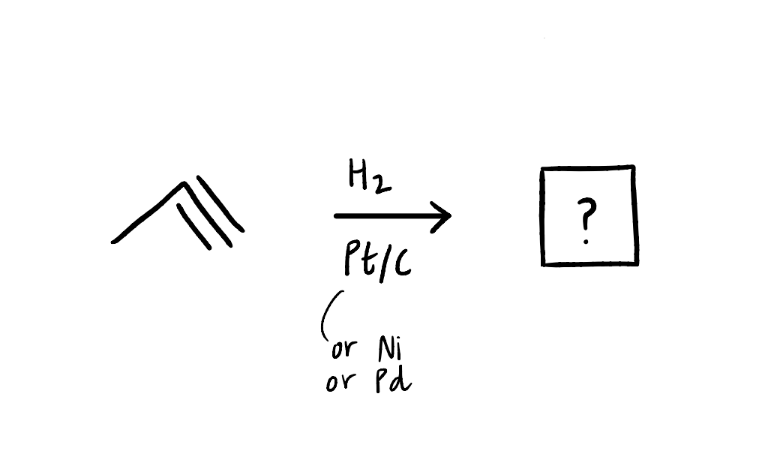 H₂
Pt/C
or Ni
or Pd
?